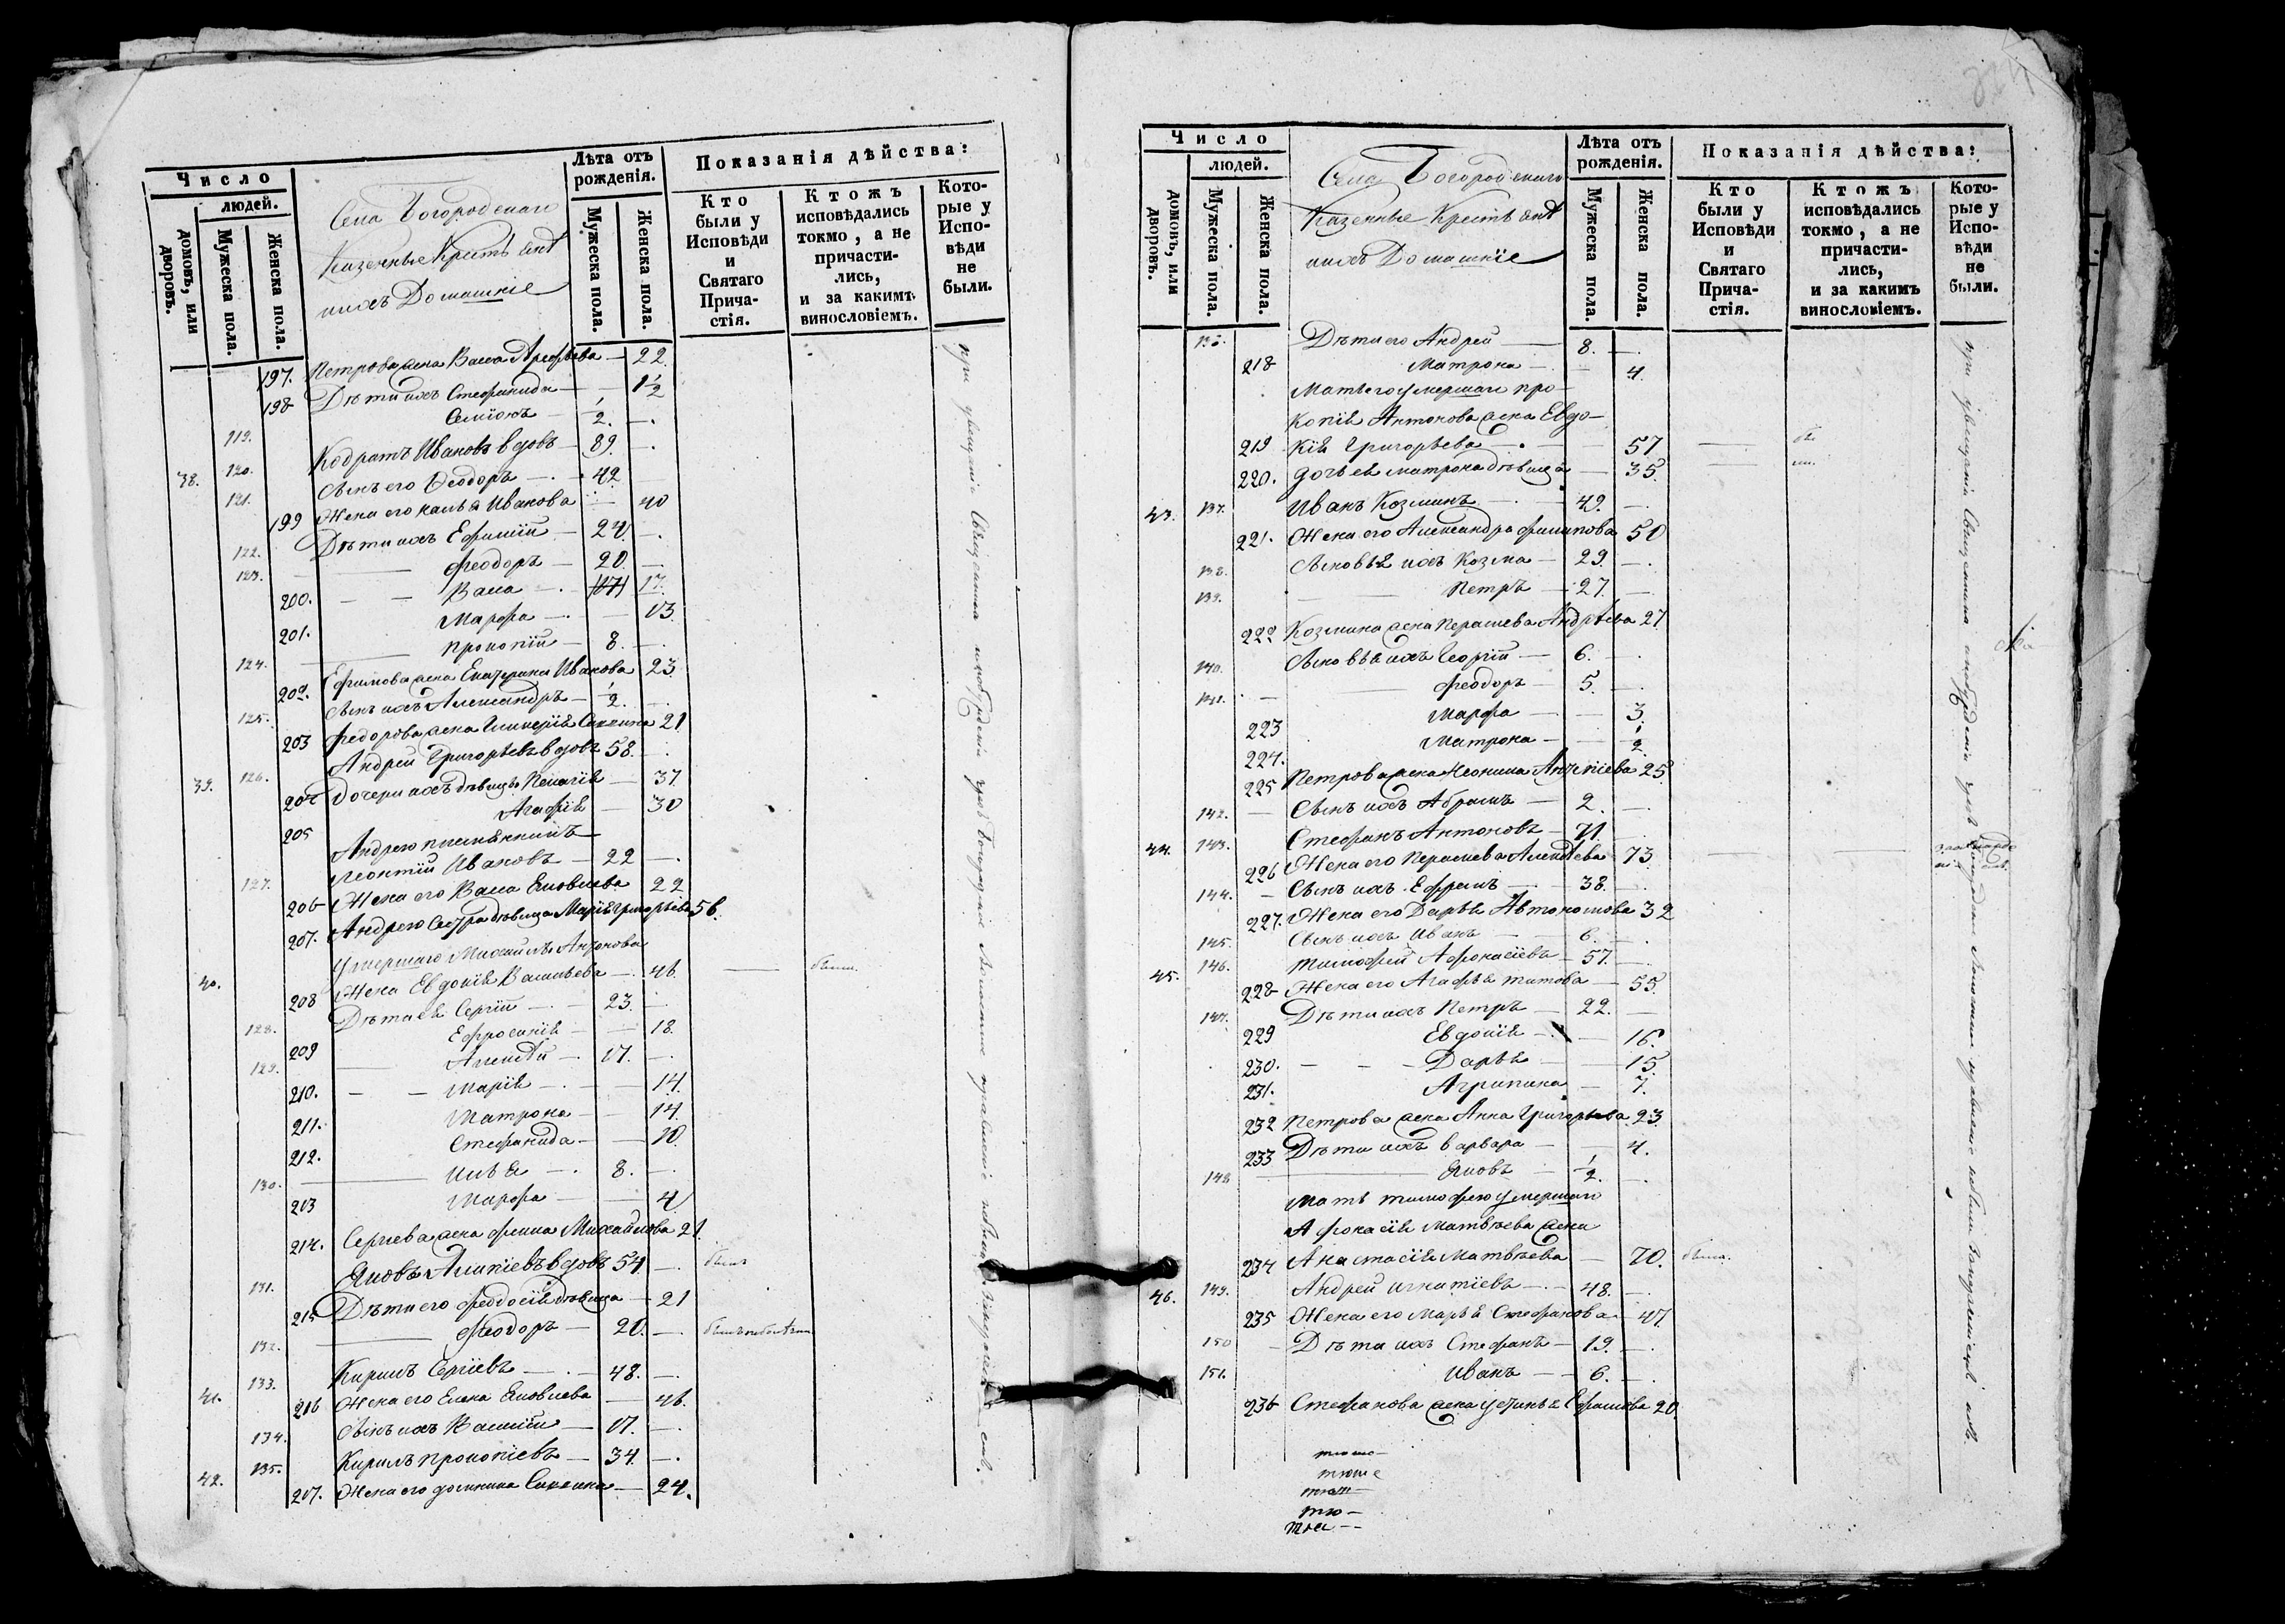 Число
людей.
домовъ, или дворовъ.
Мужеска пола.
Женска пола.
Села Богородскаго
Казенные Крестьяне
ихъ Домашніе
Лѣта отъ рожденія.
Мужеска пола.
Женска пола.
Показанія дѣйства:
Кто были у Исповѣди и Святаго Причастія.
Ктожъ исповѣдались токмо, а не причастились, и за какимъ винословіемъ.
Которые у Исповѣди не были.
197. Петрова жена Васса 22.
198 Дѣти ихъ Стефанида — 1 1/2
119. Симіонъ — 1/2. —.
38. 120. Кодратъ Ивановъ вдовъ — 89. —.
121. Сынъ его Ѳеодоръ — 42
199 Жена его Иванова — 40
122. Дѣти ихъ Ефимій — 24. —.
123. Феодоръ — 20. —.
200. Васса — 17.
201. Марфа — 13.
124. Прокопій — 8. —.
202. Ефимова жена Екатерина Иванова 23
125. Сынъ ихъ Александръ — 1/2. —.
203 Федорова жена 21
39. 126. Андрей Григорьевъ вдовъ 58. —.
204 Дочери ихъ дѣвицы Пелагія — 37.
205 Агафія — 30
Андрею племянникъ
127. Леонтій Ивановъ — 22 —.
206 Жена его Васса Яковлева 22
207. Андрею Сестра дѣвица Марія Григорьева 56.
умершаго Михаила Антонова
40. 208 Жена Евдокія Васильева — 46. — была.
128. Дѣти ея Сергій — 23. —
209 Ефросинія — 18.
129. Алексѣй — 17. —.
210. Марія — 14.
211. Матрона — 14.
212. Стефанида — 10.
130. Илья — 8. —.
213 Марфа — 4
214. Сергіева жена Фекла Михайлова 21.
131. Яковъ вдовъ 54 —. былъ
215 Дѣти его Феодосія дѣвица — 21
132. Феодоръ — 20. —.
41. 133. Кирилъ Сергіевъ — 48. —.
216 Жена его Елена Яковлева — 46.
134. Сынъ ихъ Василій — 17. —.
42. 135. Кирилъ Прокопіевъ — 34. —.
217. Жена его — 24.
Число
людей.
домовъ, или дворовъ.
Мужеска пола.
Женска пола.
Села Богородскаго
Казенные Крестьяне
ихъ Домашніе
Лѣта отъ рожденія.
Мужеска пола.
Женска пола.
Показанія дѣйства:
Кто были у Исповѣди и Святаго Причастія.
Ктожъ исповѣдались токмо, а не причастились, и за какимъ винословіемъ.
Которые у Исповѣди не были.
136. Дѣти его Андрей — 8. —.
218 Матрона — 4.
Мать его умершаго Про-
копія Антонова жена Евдо-
219 кія Григорьева — 57
220. дочь ея Матрона дѣвица — 35.
43. 137. Иванъ Козминъ — 49. —.
221. Жена его Александра Филипова 50
138. Сыновья ихъ Козма — 29. —.
139. Петръ — 27. —
222 Козмина жена Андрѣева 27
140. Сыновья ихъ Георгій — 6. —.
141. Феодоръ — 5. —.
223 Марфа — 3.
224. Матрона — 1/2.
225 Петрова жена 25
142. Сынъ ихъ Абрамъ — 2. —.
44. 143. Стефанъ Антоновъ — 71. —.
226 Жена его Алексѣева 73
144. Сынъ ихъ Ефремъ — 38. —.
227. Жена его Дарья Автономова 32
145. Сынъ ихъ Иванъ — 6. —.
45. 146. Тимофей Афонасіевъ — 57. —.
228 Жена его Агафья Титова — 55.
147. Дѣти ихъ Петръ — 22. —
229 Евдокія — 16.
230. Дарья — 15.
231. Агрипина — 7.
232 Петрова жена Анна Григорьева 23.
233 Дѣти ихъ Варвара — 4.
148 Яковъ — 1/2. —.
Мать Тимофею умершаго
Афонасія Матвѣева жена
234 Анастасія Матвѣева — 70. была.
46. 149. Андрей Игнатіевъ — 48. —.
235 Жена его Марья Стефанова — 47.
150 Дѣти ихъ Стефанъ — 19. —.
151. Иванъ — 6. —.
236 Стефанова жена Устинья Ефимова 20.